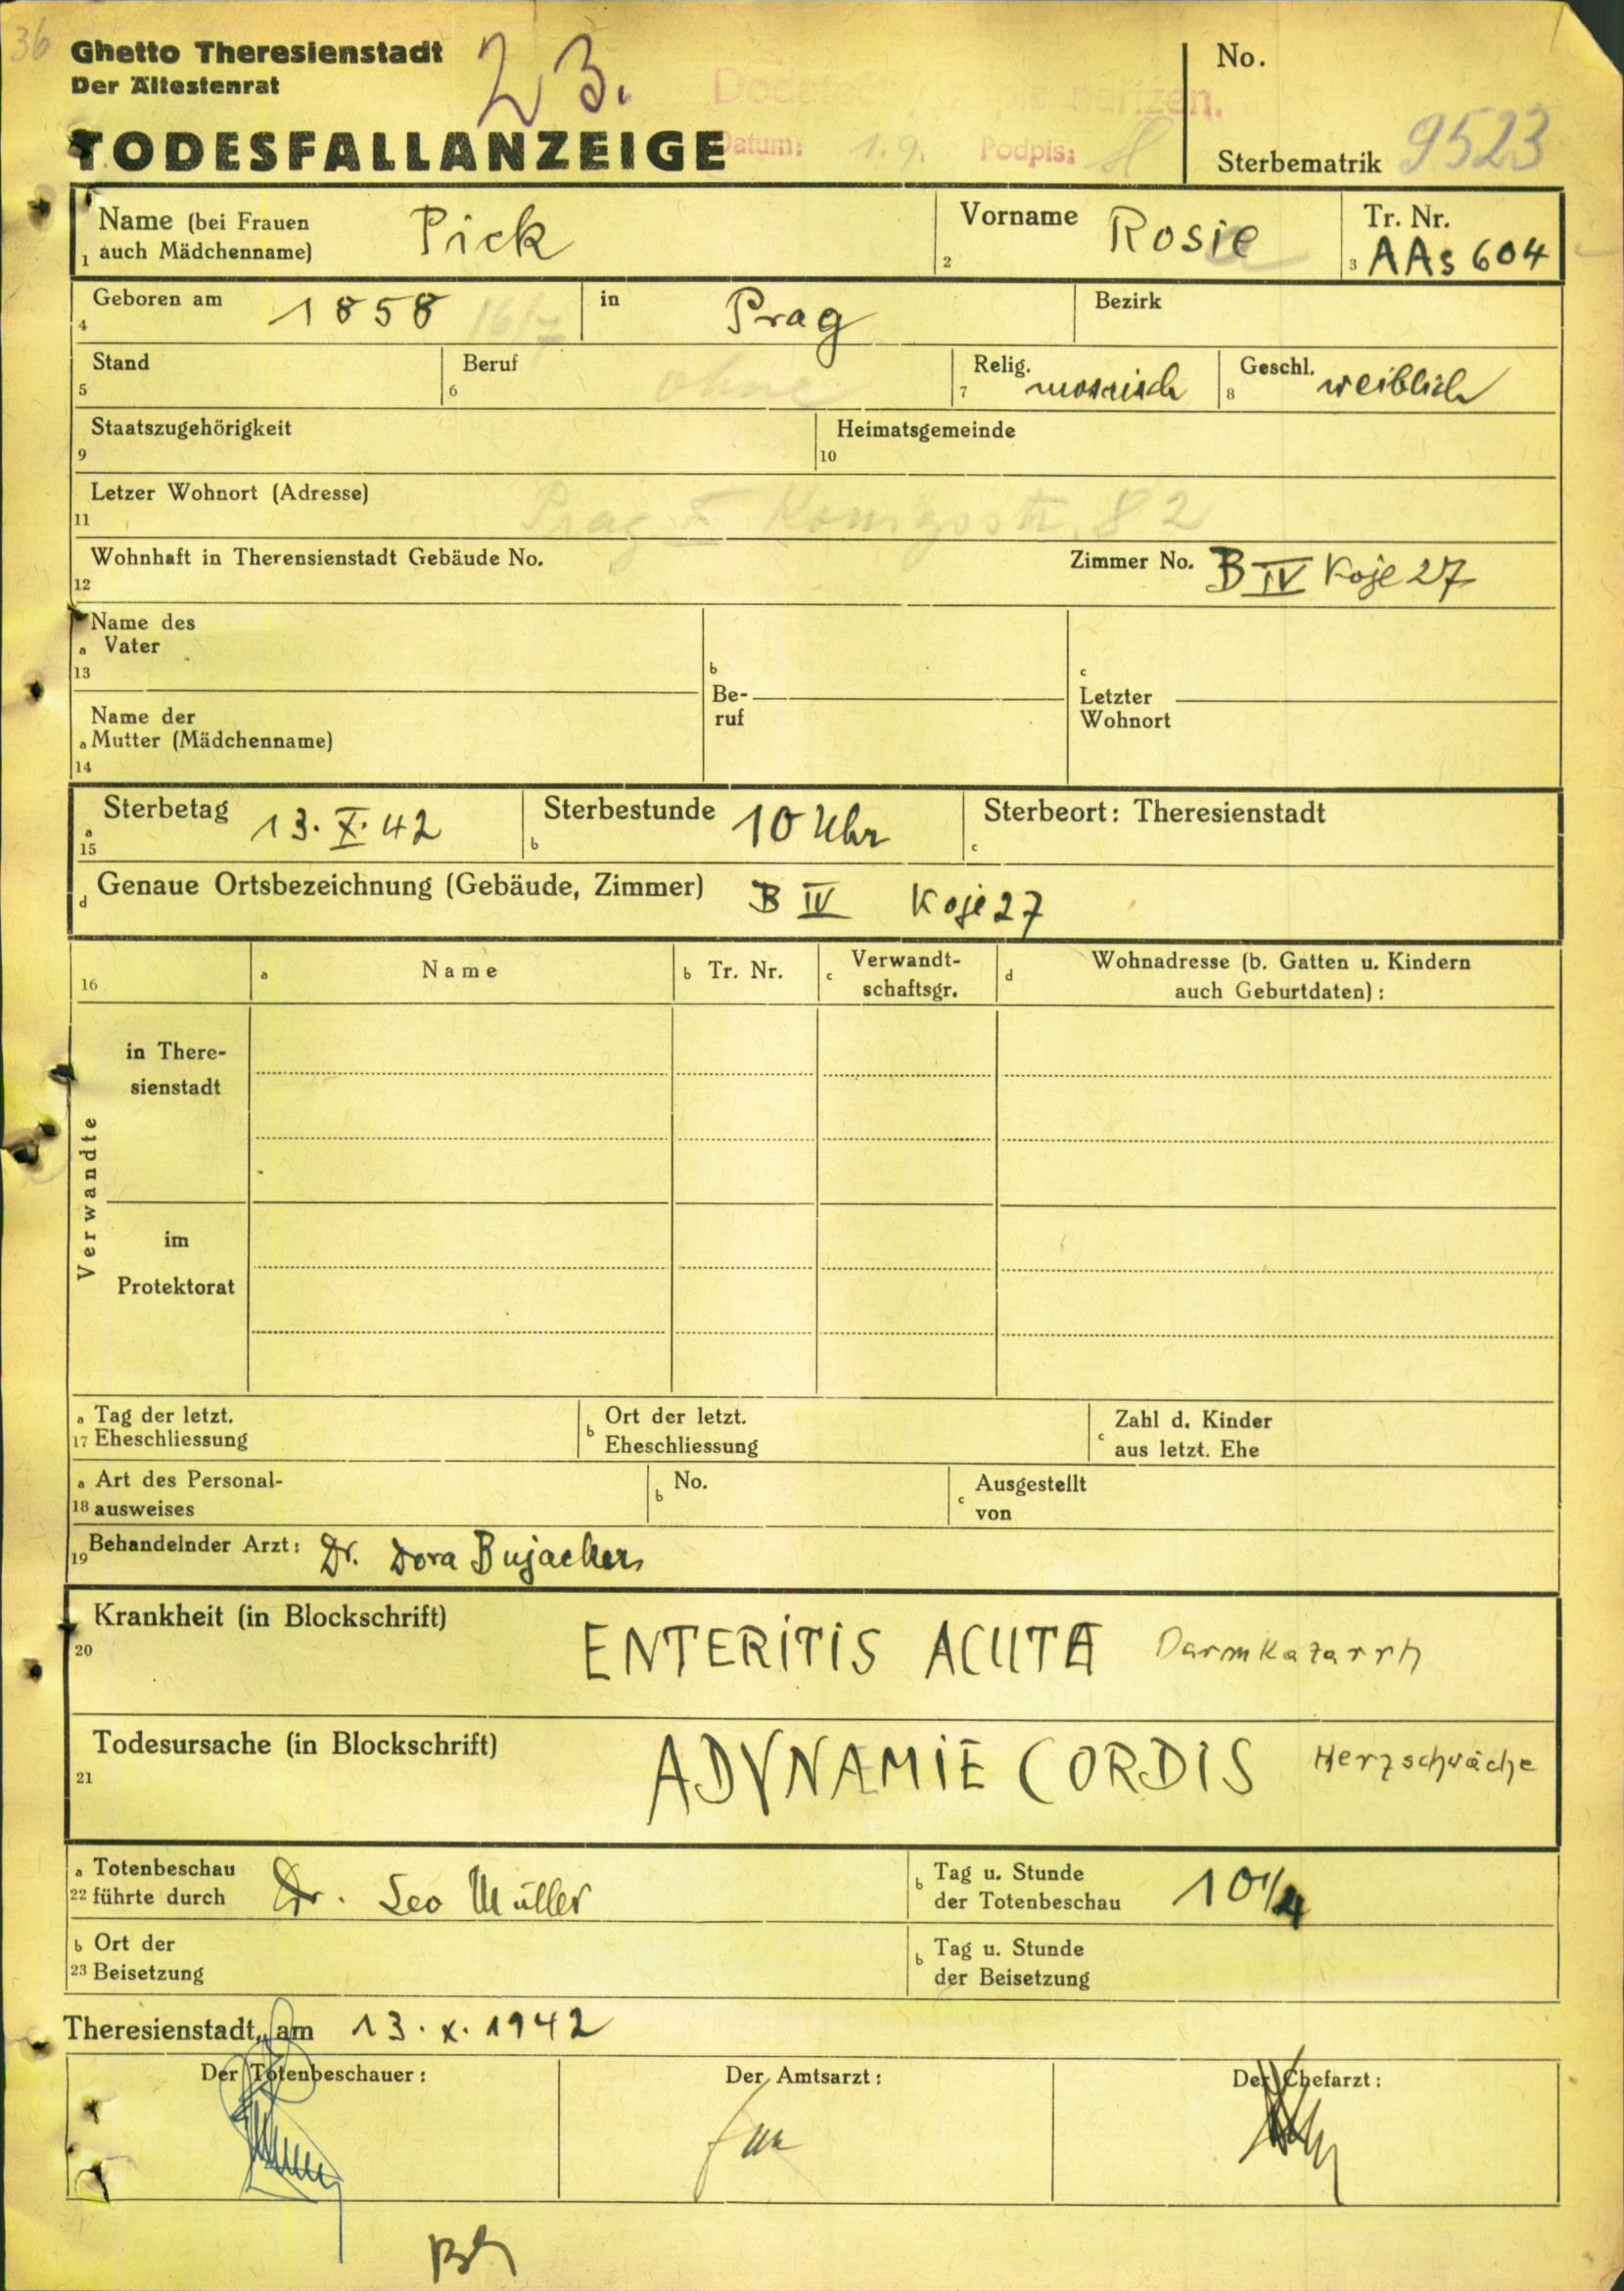 36
Ghetto Theresienstadt
Der Ältestenrat
23.
No.
TODESFALLANZEIGE
Datum: 1.9. Podpis:
Sterbematrik 9523
Name (bei Frauen
1 auch Mädchenname) Pick
2 Vorname Rosie
3 Tr. Nr. AAs 604
4 Geboren am 1858 16/7
in Prag
Bezirk
5 Stand
6 Beruf ohne
7 Relig. mosaisch
8 Geschl. weiblich
9 Staatszugehörigkeit
10 Heimatsgemeinde
11 Letzer Wohnort (Adresse) Prag Königsstr. 82
12 Wohnhaft in Therensienstadt Gebäude No.
Zimmer No. B IV Koje 27
Name des
a Vater
13
b
Be-
ruf
c
Letzter
Wohnort
Name der
a Mutter (Mädchenname)
14
a 15 Sterbetag 13. X. 42
b Sterbestunde 10 Uhr
c Sterbeort: Theresienstadt
d Genaue Ortsbezeichnung (Gebäude, Zimmer) B IV Koje 27
16
a Name
b Tr. Nr.
c Verwandt-
schaftsgr.
d Wohnadresse (b. Gatten u. Kindern
auch Geburtdaten) :
Verwandte
in There-
sienstadt
im
Protektorat
a Tag der letzt.
17 Eheschliessung
b Ort der letzt.
Eheschliessung
c Zahl d. Kinder
aus letzt. Ehe
a Art des Personal-
18 ausweises
b No.
c Ausgestellt
von
19 Behandelnder Arzt: Dr. Dora Bujackers
20 Krankheit (in Blockschrift) ENTERITIS ACUTA Darmkatarrh
21 Todesursache (in Blockschrift) ADYNAMIE CORDIS Herzschwäche
a Totenbeschau
22 führte durch Dr. Leo Müller
b Tag u. Stunde
der Totenbeschau 10 1/4
b Ort der
23 Beisetzung
b Tag u. Stunde
der Beisetzung
Theresienstadt, am 13. X. 1942
Der Totenbeschauer :
Der Amtsarzt :
Der Chefarzt :